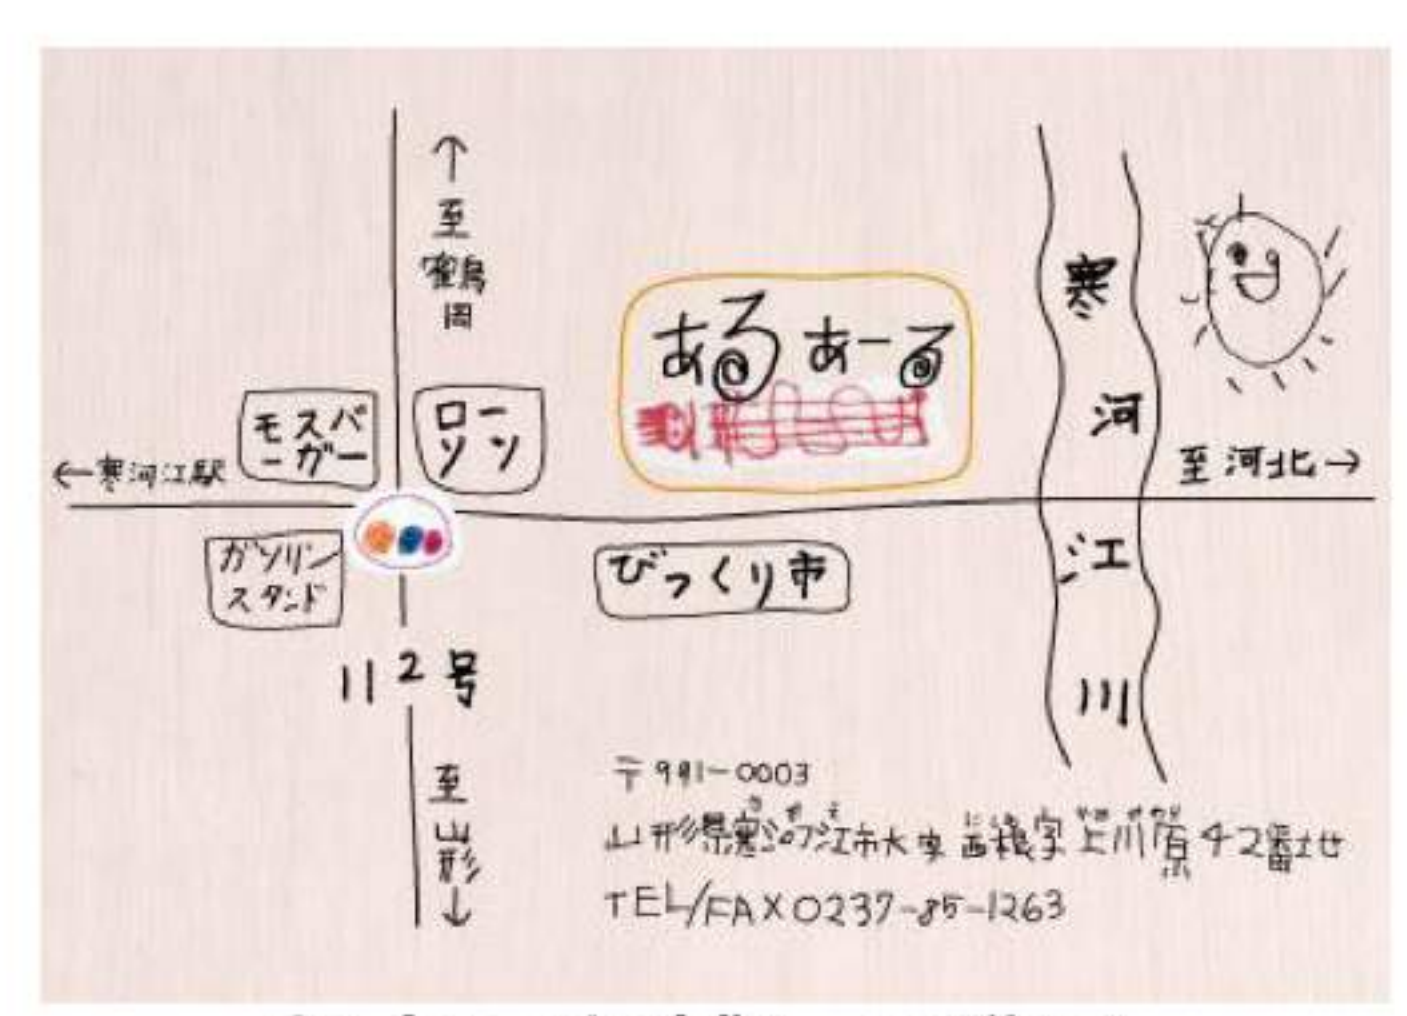 ↑
至鶴岡
寒河江川
あるあーる
モスバーガー
ローソン
←寒河江駅
至河北→
ガソリンスタンド
びっくり市
112号
至山形
↓
〒991-0003
さがえ
山形県寒河江市大字西根字上川原42番地
TEL/FAX0237-85-1263